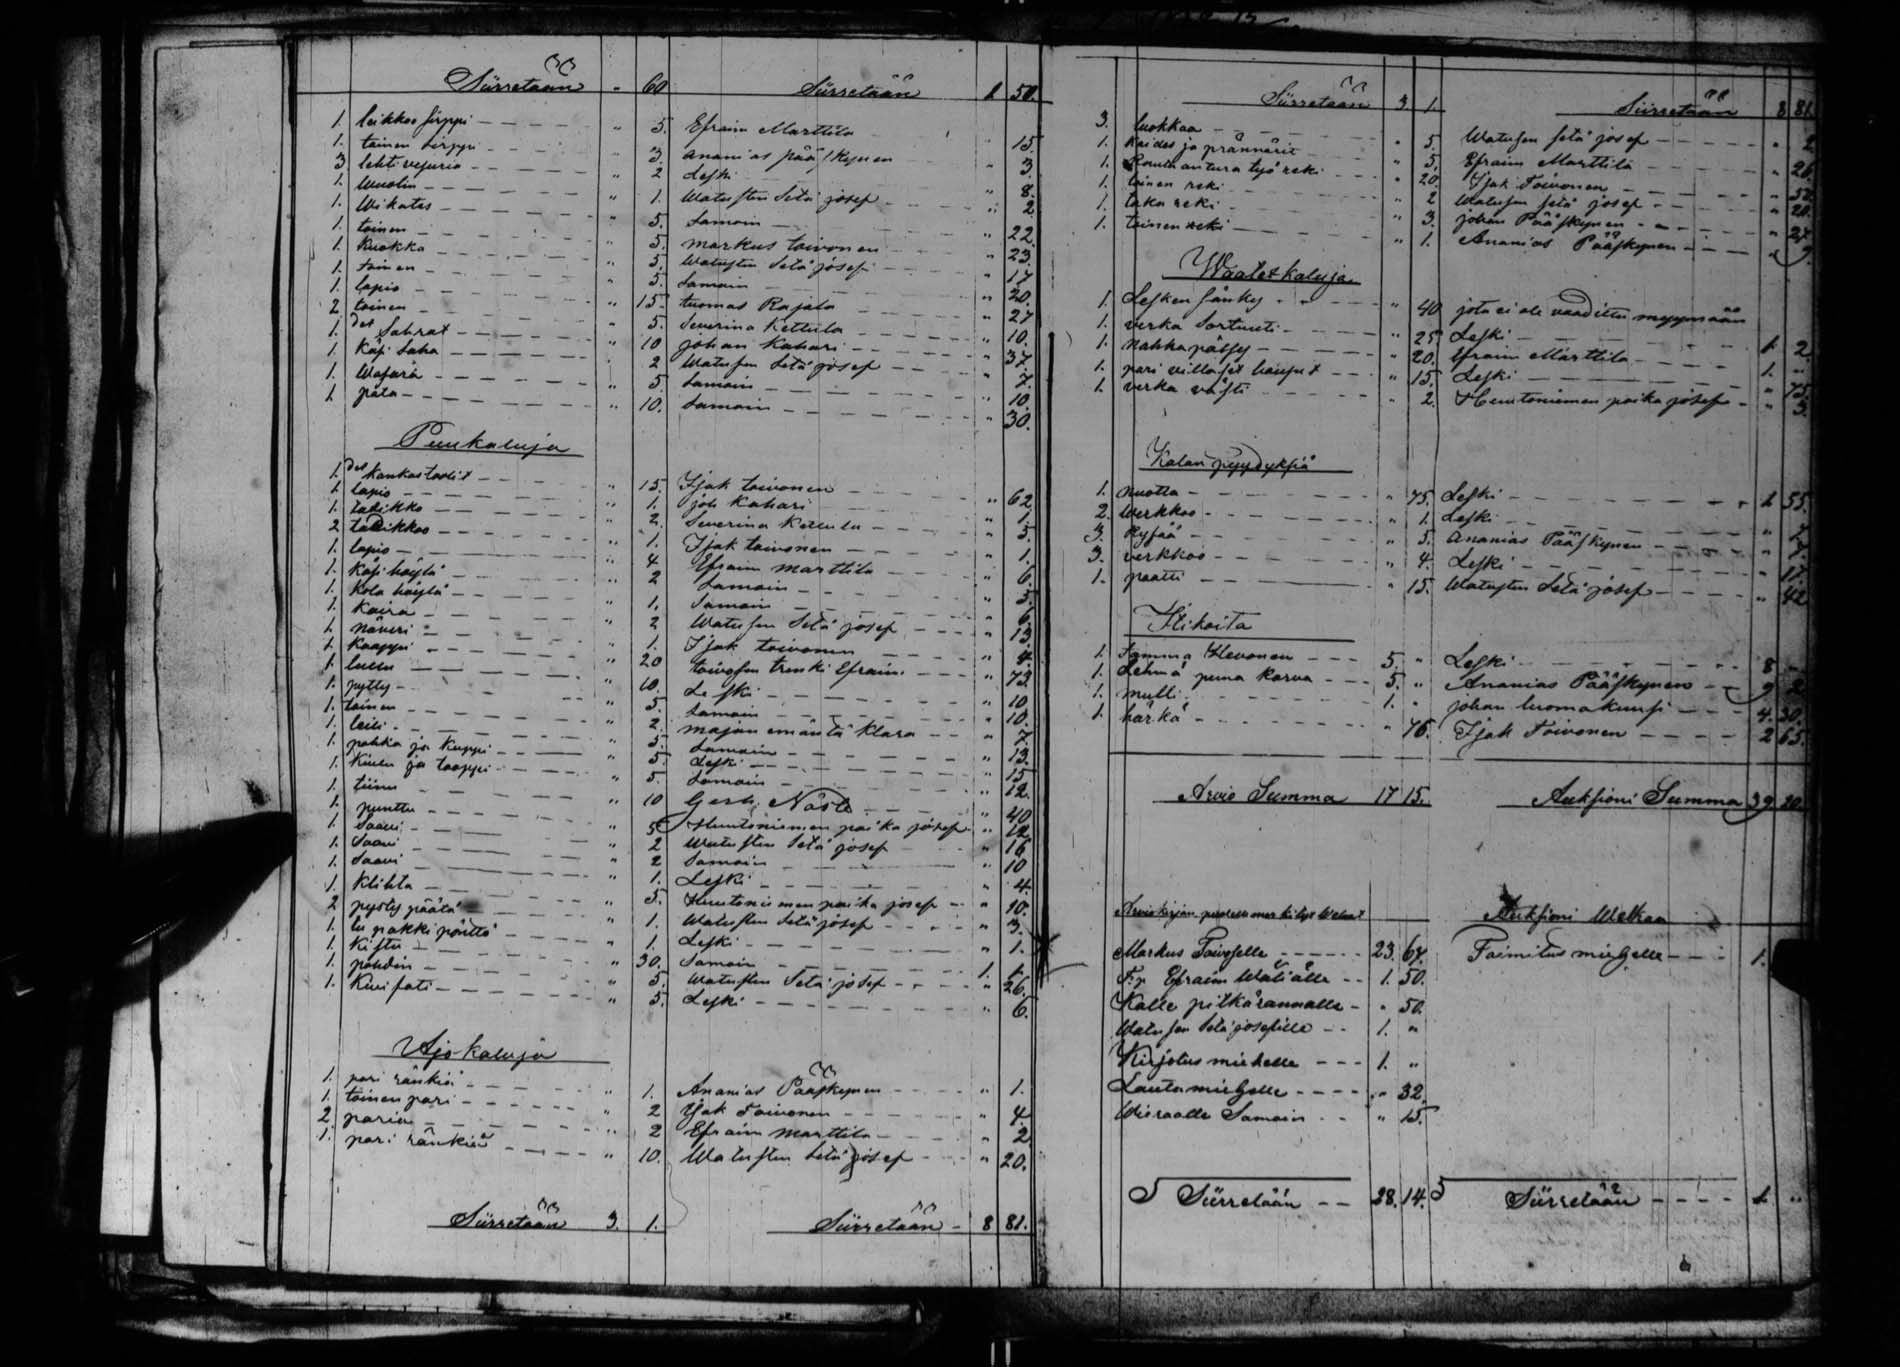 Siirretään " 60 Siirretään 1 50.
1. leikkoo sirppi " 5. Efraim Marttila 15.
1. toinen sirppi " 3. Ananias Pääskynen " 3.
3 lehti vesuria " 2 Leski " 8.
1. Wuolin " 1. Watusten Setä josef " 2.
1. Wikates " 5. Samoin " 22.
1. toinen " 5. Markus toivonen " 23.
1. Kuokka " 5. Watusten Setä josef " 17
1. toinen " 5. Samoin " 20.
1. lapio " 15. tuomas Rajala " 27
2 toinen " 5. Severina Kettula " 10.
1. det Sahrat " 10 johan Kahari " 37
1. Käsi Saha " 2 Watusen Setä josef " 7.
1. Wasara " 5. Samoin " 10.
1. pata " 10. Samoin " 30.
Puukaluja
1. det kankastoolit " 15. Isak toivonen " 62
1. lapio " 1. joh Kahari " 1.
1. tadikko " 2. Severina Kettula " 5.
2 tadikkoo " 1. Isak toivonen " 1.
1. lapio " 4 Efraim marttila " 6.
1. Käsi höylä " 2 Samoin " 5.
1. Kola höylä " 1. Samoin " 6.
1. Kaira " 2 Watusen Setä josef " 13.
1. näveri " 1. Isak toivonen " 4.
1. Kaappi " 20 toivosen trenki Efraim " 73.
1. luuu " 10. Leski " 10
1. pytty " 5. Samoin " 10.
1. toinen " 2. majan emäntä Klara " 7.
1. leili " 5. Samoin " 13.
1. pahka ja Kuppi " 5 Leski " 15
1. Kiulu ja tooppi " 5. Samoin " 12.
1. tiinu " 10 Gest. Näsle " 40
1. punttu " 5 Huutoniemen poika josef " 12
1. Saavi " 2 Watusten Setä josef " 16
1. Saavi " 2 Samoin " 10
1. Saavi " 1. Leski " 4.
1. Klihta " 5. Huutoniemen poika josef " 10.
2 pysty päätä " 1. Watusten Setä josef " 3.
1. lu pakki pöntto " 1. Leski " 1.
1. Kistu " 30. Samoin 1. 1.
1. pöhdin " 5. Watusten Setä josef " 26.
1. Kivi fati " 5. Leski " 6.
Ajokaluja
1. pari ränkiä " 1. Ananias Pääskynen " 1.
1. toinen pari " 2 Isak Toivonen " 4.
2 paria " 2 Efraim marttila " 2
1. pari ränkiä " 10. Watusten Setä josef " 20.
Siirretään 3. 1. Siirretään 8 81.
Siirretään 3 1. Siirretään 8 81.
3. luokkaa " 5. Watusen Setä josef " 2.
1. Kaides ja prännärit " 5. Efraim Marttila " 26.
1. Rauta antura työ reki " 20. Isak Toivonen " 50.
1. toinen reki " 2 Watusen Setä josef " 20.
1. taka reki " 3. johan Pääskynen " 27.
1. toinen reki " 1. Ananias Pääskynen " 9.
Waatetkaluja
1. Lesken sänky " 40 jota ei ole vaadittu myymään
1. verka Sortuuti " 25. Leski 1 2.
1. Nahka pätsy " 20. Efraim Marttila 1. "
1. pari villaset housut " 15. Leski " 75.
1. verka västi " 2. Huutoniemen poika josef " 3.
Kalan pyydyksiä
1. nuotta " 75. Leski 1 55.
2. Werkkoo " 1. Leski " 7
3. Rysää " 5. Ananias Pääskynen " 7
3. verkkoo " 4. Leski " 17.
1. paatti " 15. Watusten Setä josef " 42
Elikoita
1. tamma Hevonen 5. " Leski 8 "
1. Lehmä puna Korva 5. " Ananias Pääskynen 9 2.
1. mulli 1. " johan luomakunsi 4. 30.
1. härkä " 76. Isak Toivonen 2 65.
Arvio Summa 17 15. Auksioni Summa 39 20.
Arviokirjan puolesta merkityt Welaat Auksioni Welkaa
Markus Toivoselle 23. 67. Toimitus miehelle 1.
F:p Efraim Wäliälle 1. 50.
Kalle pitkärannalle " 50.
Watusen Setä josefille 1. "
Kirjotus miehelle 1. "
Lautamiehelle " 32.
Wieraalle Samoin " 15.
Siirretään 28. 14. Siirretään 1 "